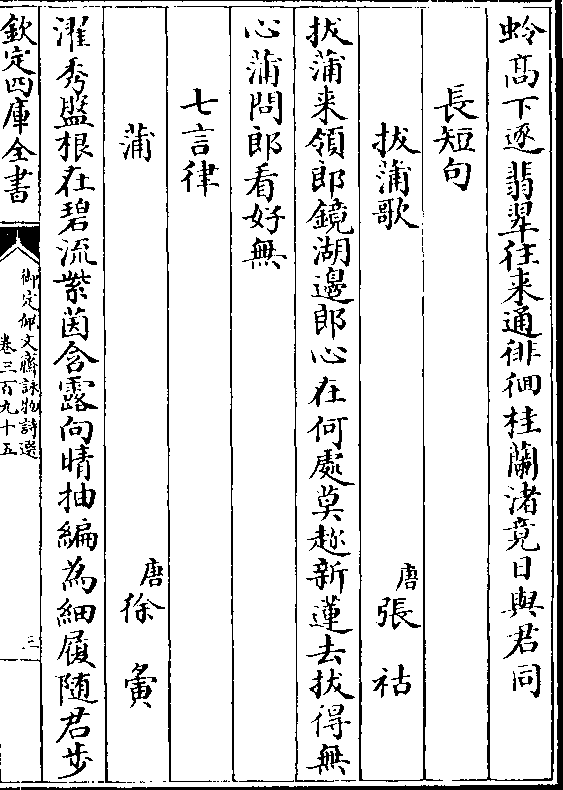 蛉髙下逐翡翠往来通徘徊桂蘭渚竟日與君同
長短句
拔蒲歌
唐張祜
拔蒲来領郎鏡湖邊郎心在何處莫趂新蓮去拔得無
心蒲問郎看好無
七言律
蒲
唐徐夤
濯秀盤根在碧流紫茵含露向晴抽編為細履随君步
欽定四庫全書
御定佩文齋詠物詩選
卷三百九十五
三